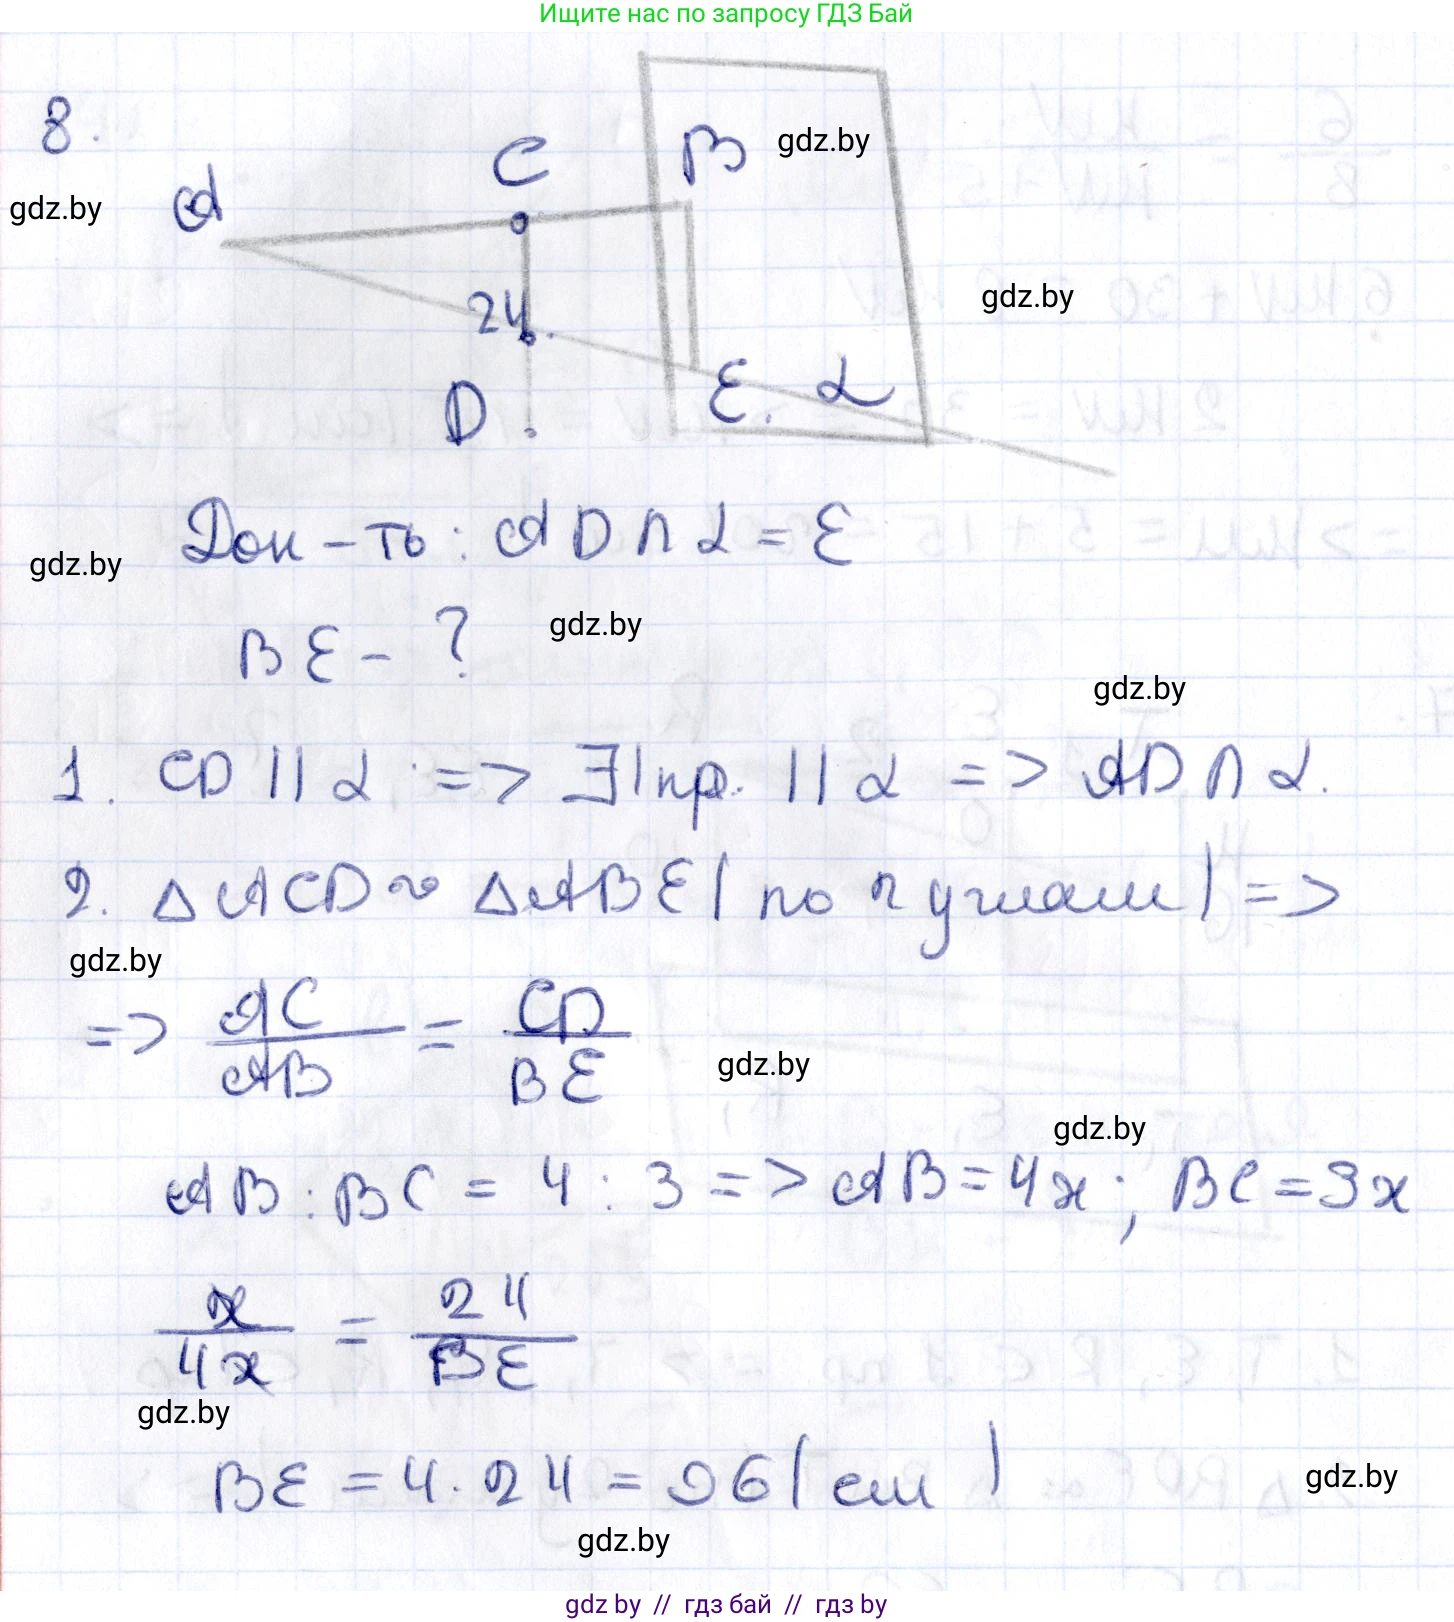 Ищите нас по запросу ГДЗ Бай
8.
gdz.by
A
C
B
gdz.by
gdz.by
24
D
E.
α
Док-ть: AD ∩ α = E
gdz.by
BE - ?
gdz.by
gdz.by
1. CD || α => ∃! пр. || α => AD ∩ α.
2. △ACD ~ △ABE (по 2 углам) =>
gdz.by
=> AC/AB = CD/BE
gdz.by
gdz.by
AB : BC = 4 : 3 => AB = 4x; BC = 3x
x/4x = 24/BE
gdz.by
BE = 4 · 24 = 96 (см)
gdz.by
gdz.by
gdz by // гдз бай // гдз by